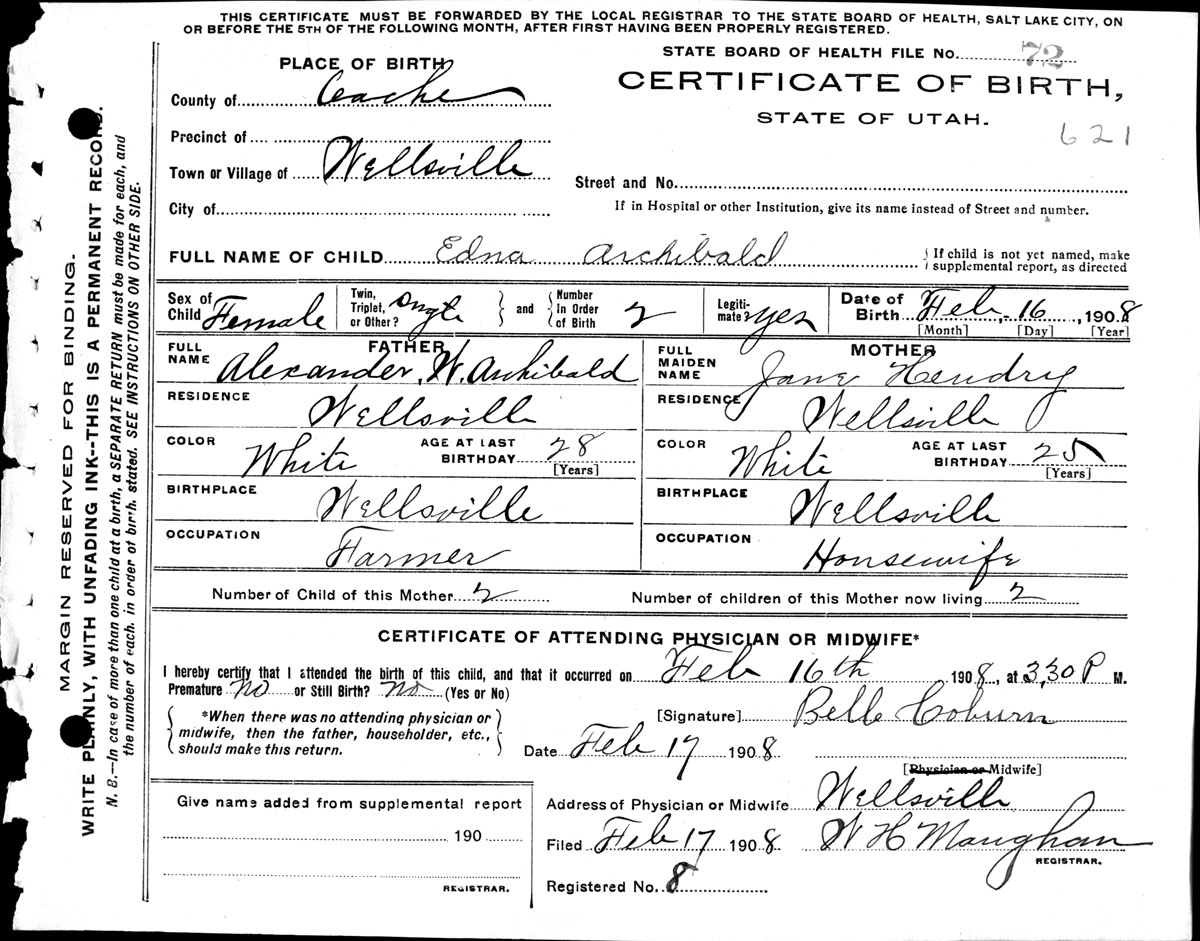 THIS CERTIFICATE MUST BE FORWARDED BY THE LOCAL REGISTRAR TO THE STATE BOARD OF HEALTH, SALT LAKE CITY, ON
OR BEFORE THE 5TH OF THE FOLLOWING MONTH, AFTER FIRST HAVING BEEN PROPERLY REGISTERED.
STATE BOARD OF HEALTH FILE No. 72
PLACE OF BIRTH
CERTIFICATE OF BIRTH,
County of Cache
STATE OF UTAH.
621
Precinct of
Town or Village of Wellsville
Street and No.
City of
If in Hospital or other Institution, give its name instead of Street and number.
FULL NAME OF CHILD Edna Archibald
If child is not yet named, make supplemental report, as directed
Sex of Child Female
Twin, Triplet, or Other? Single and Number In Order of Birth 2
Legiti-mate? yes
Date of Birth Feb. 16, 1908
[Month] [Day] [Year]
FATHER
FULL NAME Alexander W. Archibald
MOTHER
FULL MAIDEN NAME Jane Hendry
RESIDENCE Wellsville
RESIDENCE Wellsville
COLOR White AGE AT LAST BIRTHDAY 28 [Years]
COLOR White AGE AT LAST BIRTHDAY 25 [Years]
BIRTHPLACE Wellsville
BIRTHPLACE Wellsville
OCCUPATION Farmer
OCCUPATION Housewife
Number of Child of this Mother 2
Number of children of this Mother now living 2
CERTIFICATE OF ATTENDING PHYSICIAN OR MIDWIFE*
I hereby certify that I attended the birth of this child, and that it occurred on Feb 16th 1908, at 3,30 P M.
Premature No or Still Birth? No (Yes or No)
*When there was no attending physician or
midwife, then the father, householder, etc.,
should make this return.
[Signature] Belle Coburn
Date Feb 17 1908
[Physician or Midwife]
Give name added from supplemental report
190
REGISTRAR.
Address of Physician or Midwife Wellsville
Filed Feb 17 1908 W H Maughan
REGISTRAR.
Registered No. 8
MARGIN RESERVED FOR BINDING.
WRITE PLAINLY, WITH UNFADING INK--THIS IS A PERMANENT RECORD.
N. B.—In case of more than one child at a birth, a SEPARATE RETURN must be made for each, and
the number of each, in order of birth, stated. SEE INSTRUCTIONS ON OTHER SIDE.